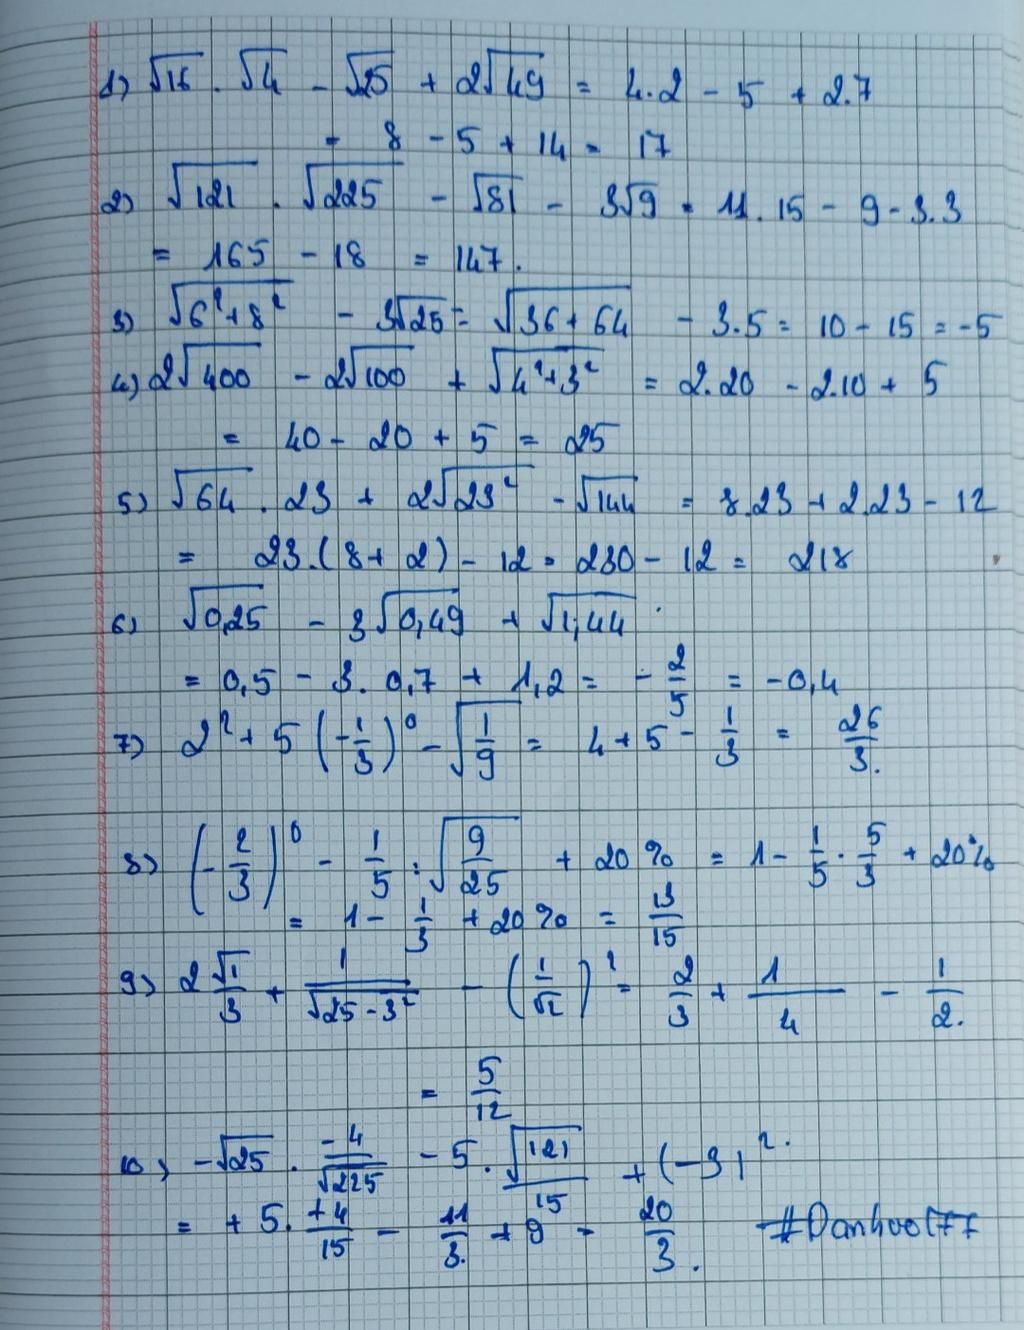 1) √16 . √4 - √25 + 2√49 = 4.2 - 5 + 2.7
= 8 - 5 + 14 = 17
2) √121 . √225 - √81 - 3√9 = 11.15 - 9 - 3.3
= 165 - 18 = 147.
3) √(6²+8²) - 3√25 = √(36+64) - 3.5 = 10 - 15 = -5
4) 2√400 - 2√100 + √(4²+3²) = 2.20 - 2.10 + 5
= 40 - 20 + 5 = 25
5) √64 . 23 + 2√23² - √144 = 8.23 + 2.23 - 12
= 23.(8+2) - 12 = 230 - 12 = 218
6) √0,25 - 3√0,49 + √1,44
= 0,5 - 3.0,7 + 1,2 = -2/5 = -0,4
7) 2² + 5(-1/3)⁰ - √(1/9) = 4 + 5 - 1/3 = 26/3.
8) (-2/3)⁰ - 1/5 : √(9/25) + 20% = 1 - 1/5 . 5/3 + 20%
= 1 - 1/3 + 20% = 13/15
9) 2 √1/3 + 1/√(25-3²) - (1/√2)² = 2/3 + 1/4 - 1/2.
= 5/12
10) -√25 . -4/√225 - 5 . √121/15 + (-3)².
= +5. +4/15 - 11/3. + 9 = 20/3.